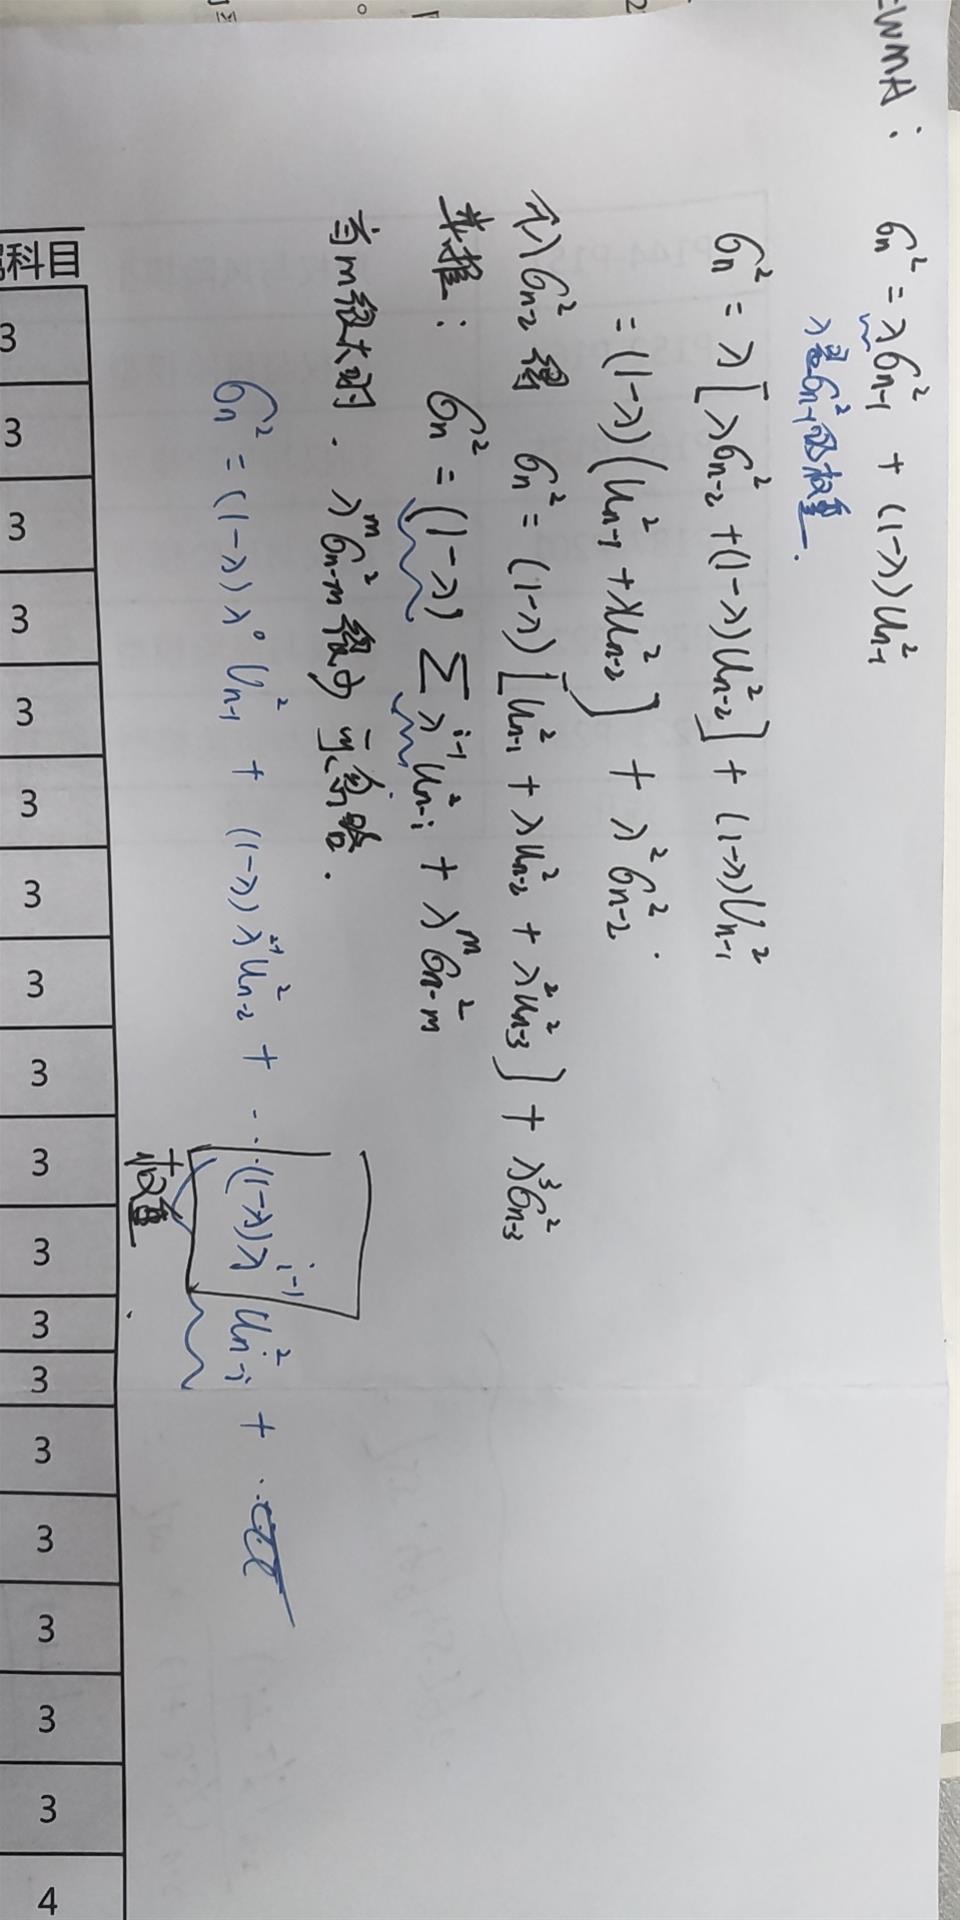 EWMA: σn² = λσn-1² + (1-λ)un-1²
λ是σn-1²的权重.
σn² = λ[λσn-2² + (1-λ)un-2²] + (1-λ)un-1²
= (1-λ)(un-1² + λun-2²] + λ²σn-2².
代入σn-2²得 σn² = (1-λ)[un-1² + λun-2² + λ²un-3²] + λ³σn-3²
类推: σn² = (1-λ) Σ λ^i-1 un-i² + λ^m σn-m²
当m很大时. λ^m σn-m² 很小 可忽略.
σn² = (1-λ)λ⁰un-1² + (1-λ)λ^2-1 un-2² + ··· (1-λ)λ^i-1 un-i² + ·
权重
科目
3
3
3
3
3
3
3
3
3
3
3
3
3
3
3
3
3
4